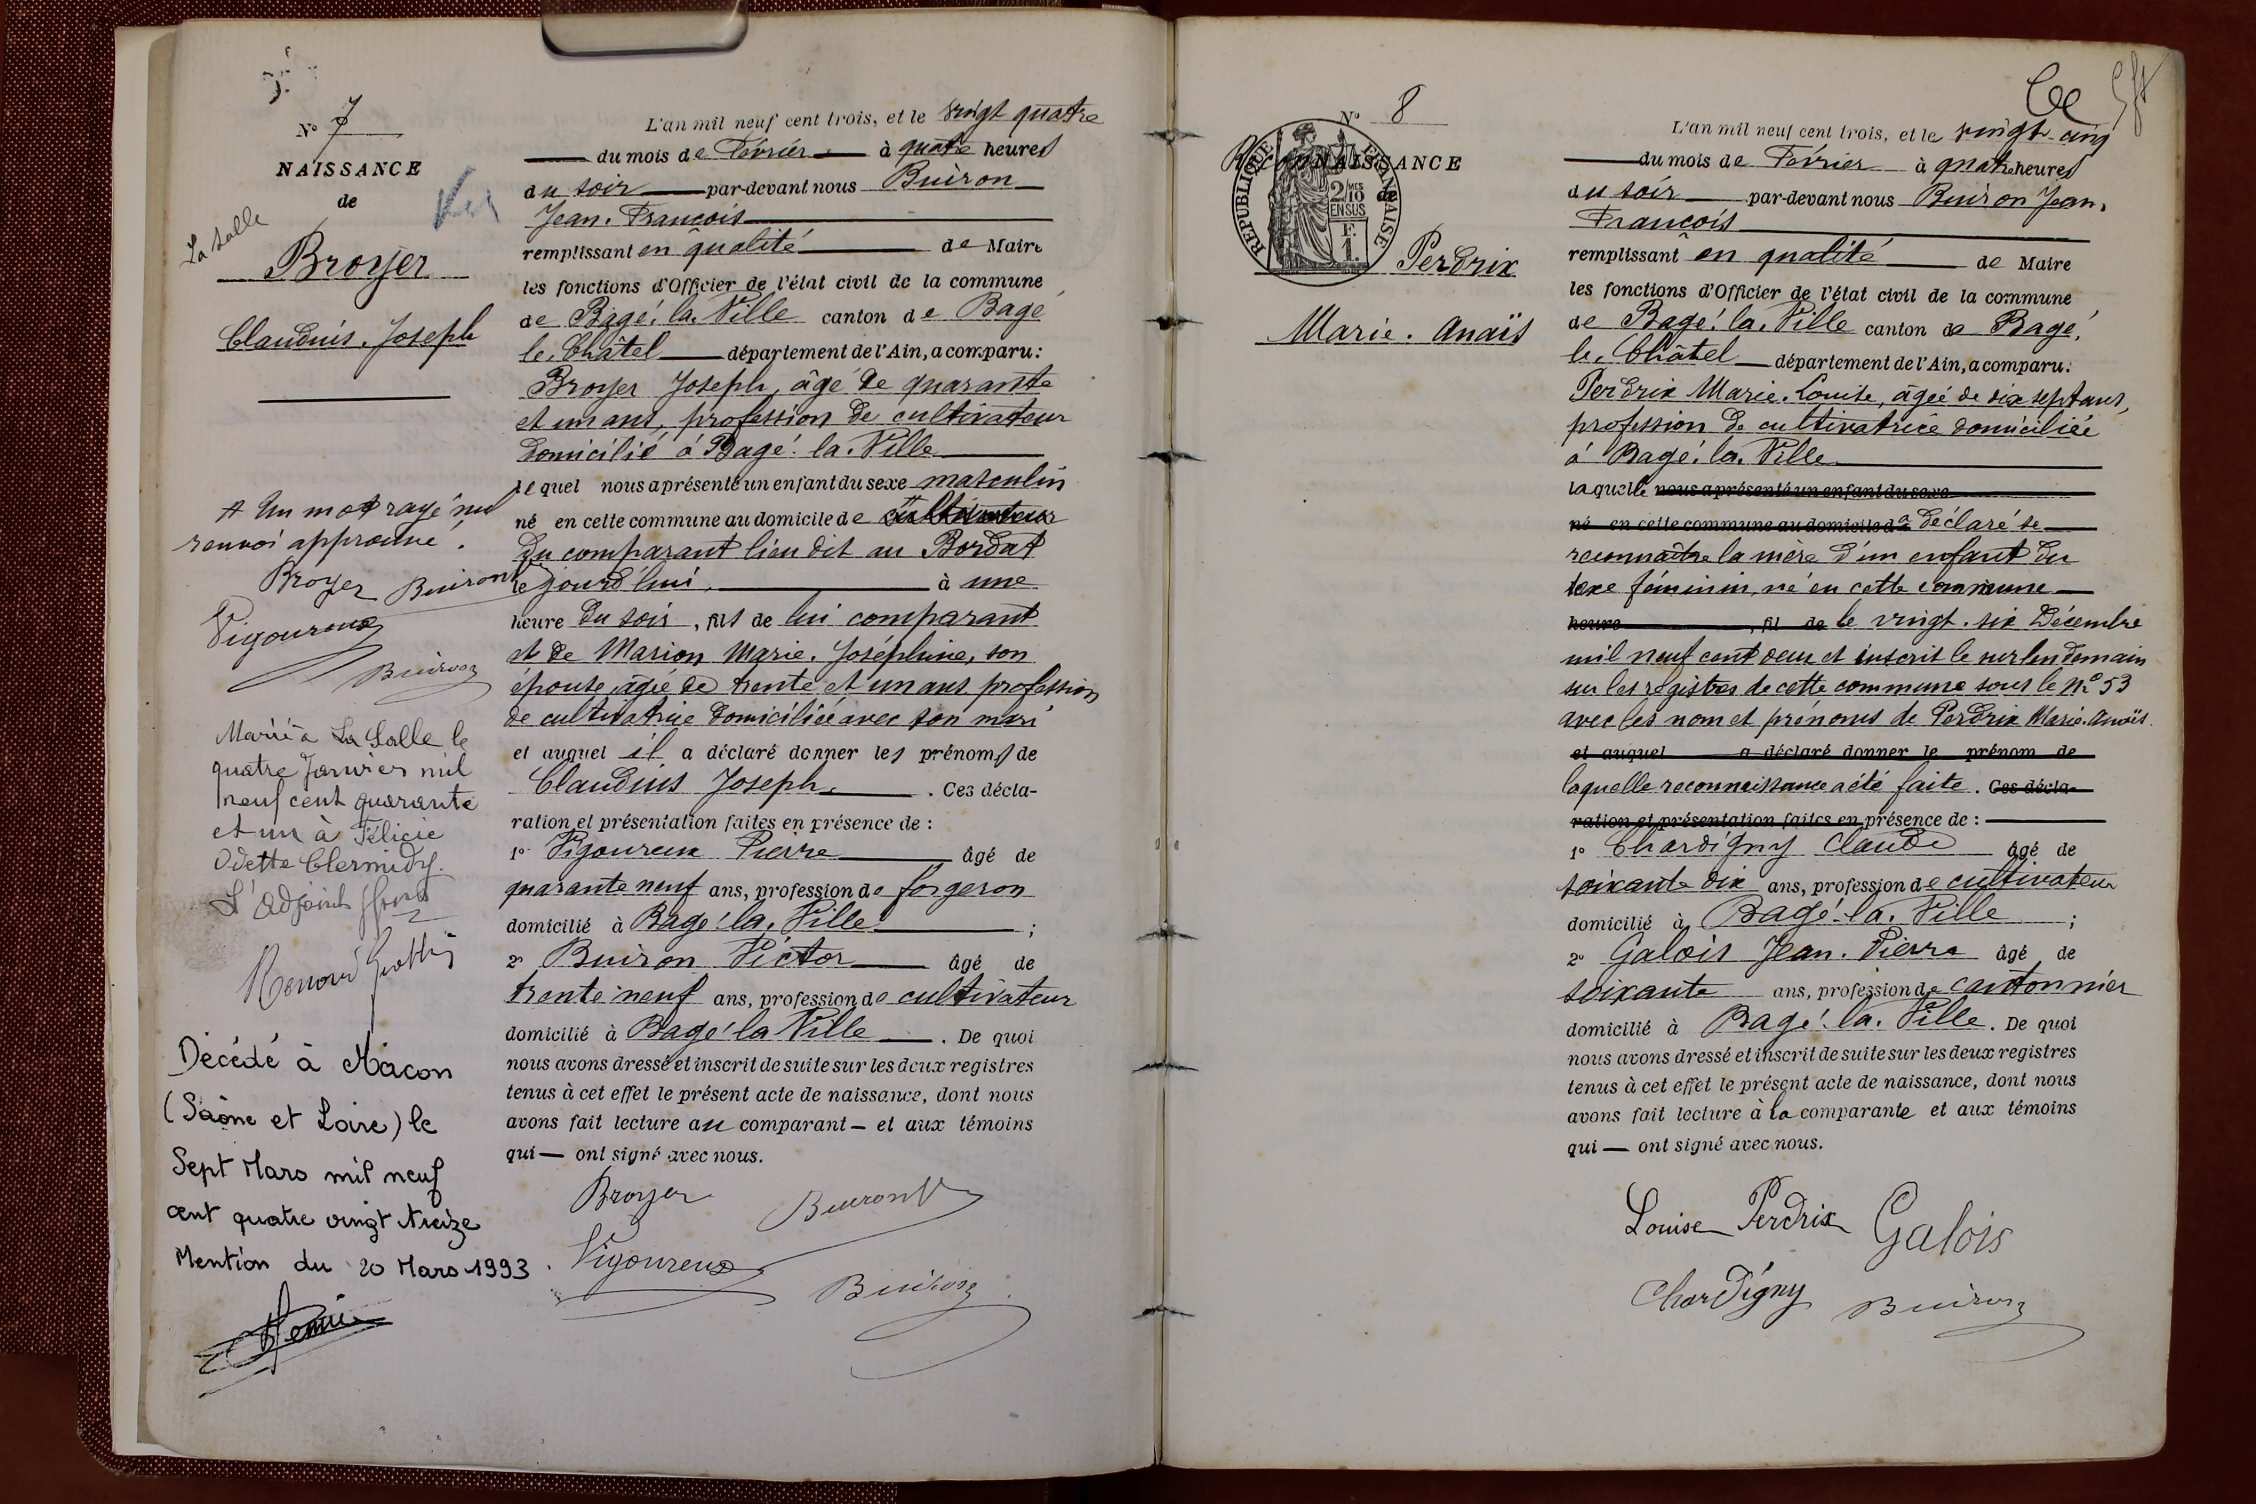 N° 7
NAISSANCE
de
La Salle
Broyer
Claudius. Joseph
+ Un mot rayé nul
renvoi approuvé.
Broyer Buiron
Vigoureux
Buiron
Marié à La Salle le
quatre Janvier mil
neuf cent quarante
et un à Félicie
Odette Clermidy.
L'adjoint
Décédé à Mâcon
(Saône et Loire) le
Sept Mars mil neuf
cent quatre vingt treize
Mention du 20 Mars 1993.
L'an mil neuf cent trois, et le vingt quatre
du mois de Février à quatre heures
du soir par-devant nous Buiron
Jean. François
remplissant en qualité de Maire
les fonctions d'Officier de l'état civil de la commune
de Bâgé. la. Ville canton de Bagé
le. Châtel département de l'Ain, a comparu:
Broyer Joseph, âgé de quarante
et un ans, profession de cultivateur
domicilié à Bagé. la. Ville
lequel nous a présenté un enfant du sexe masculin
né en cette commune au domicile de cultivateur
du comparant lieu dit au Bordat
le jourd'hui, à une
heure du soir, fils de lui comparant
et de Marion Marie. Joséphine, son
épouse, âgée de trente et un ans profession
de cultivatrice domiciliée avec son mari
et auquel il a déclaré donner les prénoms de
Claudius Joseph. . Ces décla-
ration et présentation faites en présence de :
1° Vigoureux Pierre âgé de
quarante neuf ans, profession de forgeron
domicilié à Bagé. la. Ville ;
2° Buiron Victor âgé de
trente neuf ans, profession de cultivateur
domicilié à Bagé. la Ville . De quoi
nous avons dressé et inscrit de suite sur les deux registres
tenus à cet effet le présent acte de naissance, dont nous
avons fait lecture au comparant — et aux témoins
qui — ont signé avec nous.
Broyer Buiron V
Vigoureux
Buiron
N° 8
ReconNAISSANCE
de
REPUBLIQUE FRANÇAISE
2/10 MES
EN SUS
F.
1.
Perdrix
Marie. Anaïs
L'an mil neuf cent trois, et le vingt-cinq
du mois de Février à quatre heures
du soir par-devant nous Buiron Jean.
François
remplissant en qualité de Maire
les fonctions d'Officier de l'état civil de la commune
de Bagé. la. Ville canton de Bagé.
le. Châtel département de l'Ain, a comparu:
Perdrix Marie. Louise, âgée de dix sept ans,
profession de cultivatrice domiciliée
à Bagé. la. Ville
laquelle nous a présenté un enfant du sexe
né en cette commune au domicile d a déclaré se
reconnaître la mère d'un enfant du
sexe féminin, né en cette commune
heure , fil de le vingt. six Décembre
mil neuf cent deux et inscrit le surlendemain
sur les registres de cette commune sous le N° 53
avec les nom et prénoms de Perdrix Marie. Anaïs
et auquel a déclaré donner le prénom de
laquelle reconnaissance a été faite . Ces décla-
ration et présentation faites en présence de :
1° Chardigny Claude âgé de
soixante dix ans, profession de cultivateur
domicilié à Bagé. la. Ville ;
2° Galois Jean. Pierre âgé de
soixante ans, profession de cantonnier
domicilié à Bagé. la. Ville. De quoi
nous avons dressé et inscrit de suite sur les deux registres
tenus à cet effet le présent acte de naissance, dont nous
avons fait lecture à la comparante et aux témoins
qui — ont signé avec nous.
Louise Perdrix Galois
Chardigny Buiron